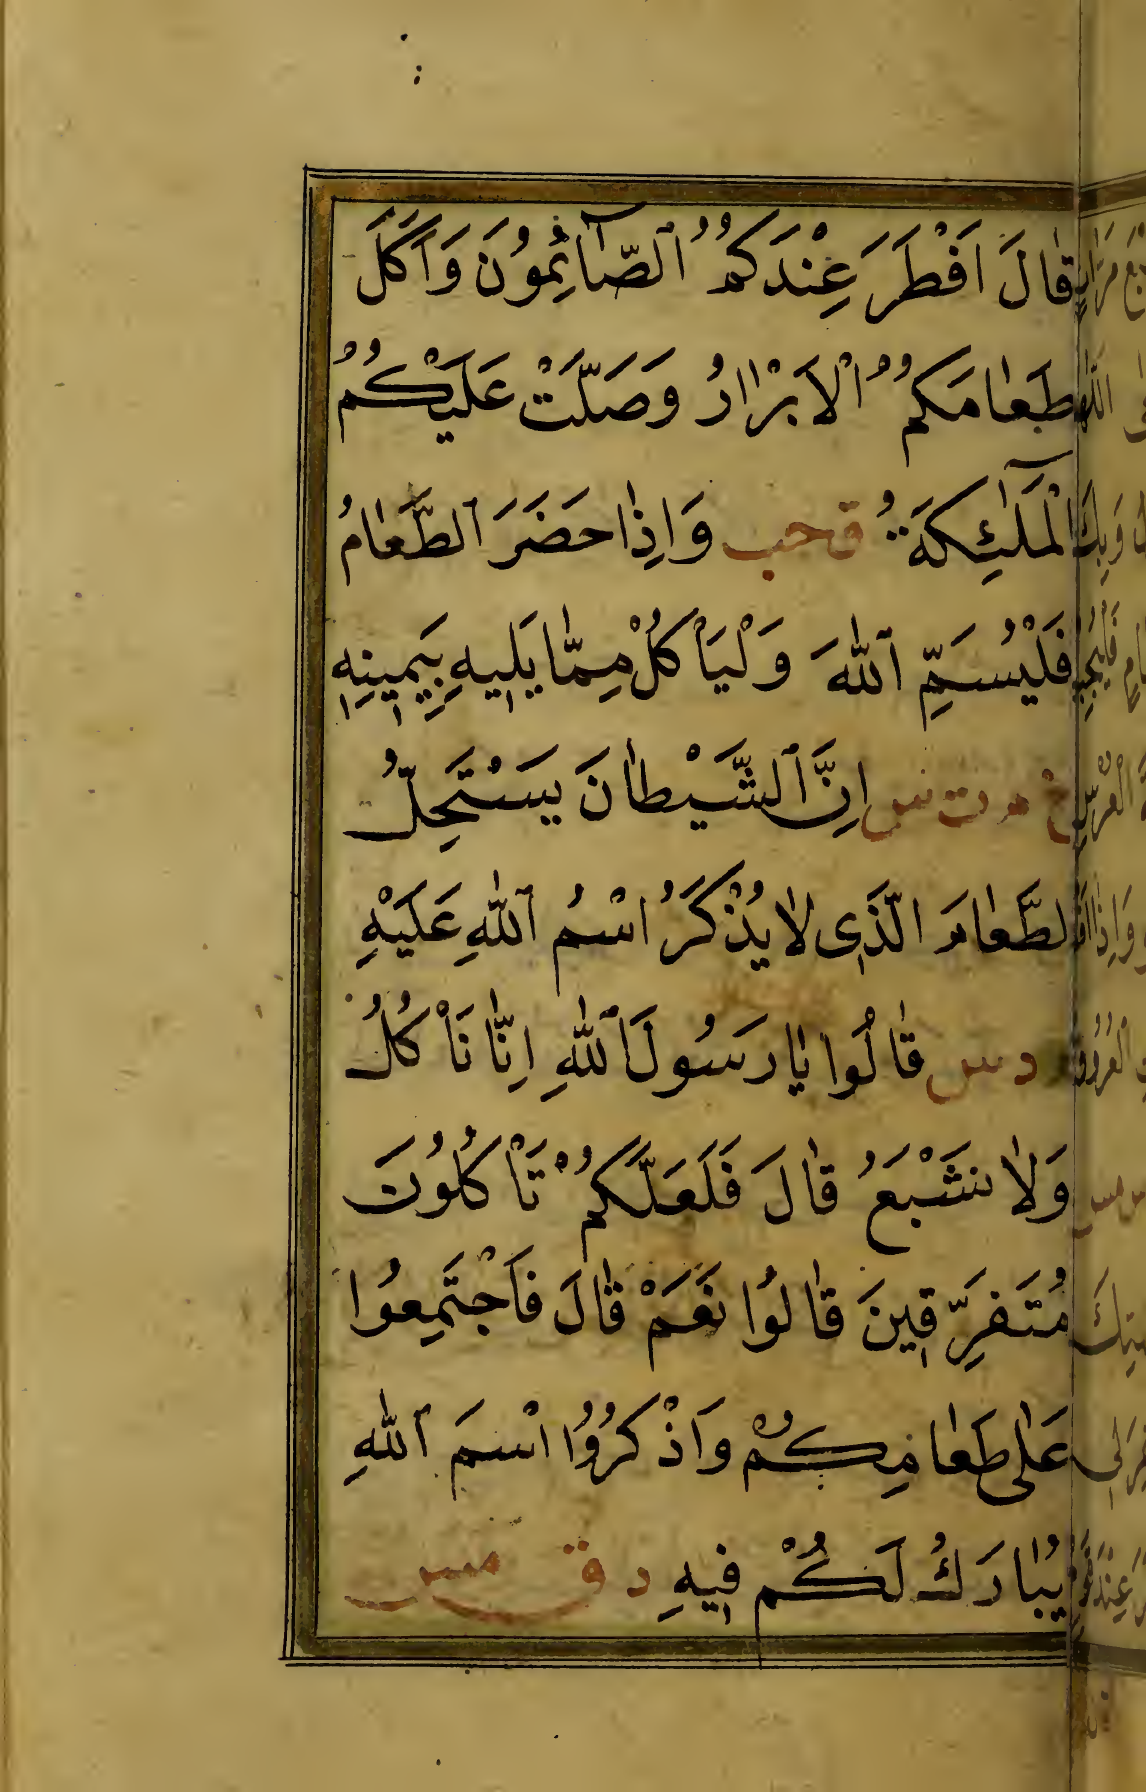 قَالَ اَفْطَرَ عِنْدَكُمُ الصَّآئِمُوْنَ وَاَكَلَ
طَعَامَكُمُ الْاَبْرَارُ وَصَلَّتْ عَلَيْكُمُ
الْمَلٰٓئِكَةُ ق حب وَاِذَا حَضَرَ الطَّعَامُ
فَلْيُسَمِّ اللّٰهَ وَلْيَأْكُلْ مِمَّا يَلِيهِ بِيَمِينِهِ
خ م د ت س اِنَّ الشَّيْطَانَ يَسْتَحِلُّ
الطَّعَامَ الَّذِى لَا يُذْكَرُ اسْمُ اللّٰهِ عَلَيْهِ
م د س قَالُوا يَا رَسُولَ اللّٰهِ اِنَّا نَأْكُلُ
وَلَا نَشْبَعُ قَالَ فَلَعَلَّكُمْ تَأْكُلُوْنَ
مُتَفَرِّقِينَ قَالُوا نَعَمْ قَالَ فَاجْتَمِعُوا
عَلٰى طَعَامِكُمْ وَاذْكُرُوا اسْمَ اللّٰهِ
يُبَارَكْ لَكُمْ فِيهِ د ق مس